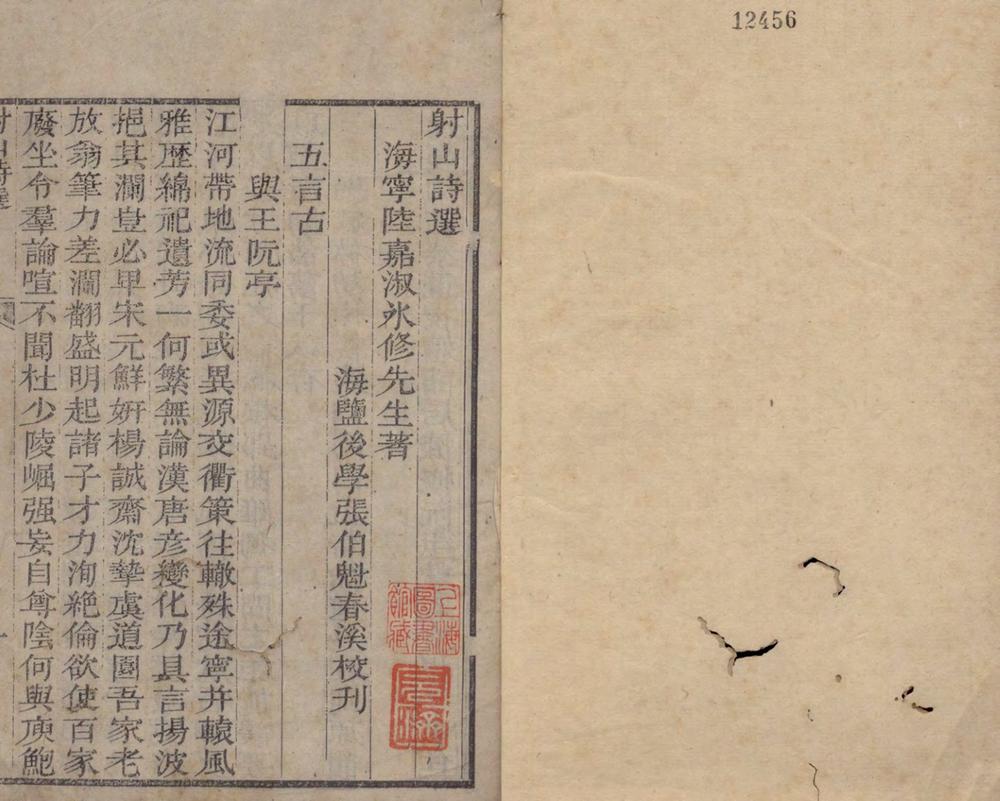 12456
射山詩選
海寧陸嘉淑氷修先生著
海鹽後學張伯魁春溪校刊
五言古
與王阮亭
江河帶地流同委或異源交衢策往轍殊途寧幷轅風
雅歷綿祀遺芳一何繁無論漢唐彥變化乃具言揚波
挹其瀾豈必卑宋元鮮姸楊誠齋沈摯虞道園吾家老
放翁筆力差瀾翻盛明起諸子才力洵絕倫欲使百家
廢坐令羣論喧不聞杜少陵崛强妄自尊陰何與庾鮑
射山詩選
上海圖書館藏